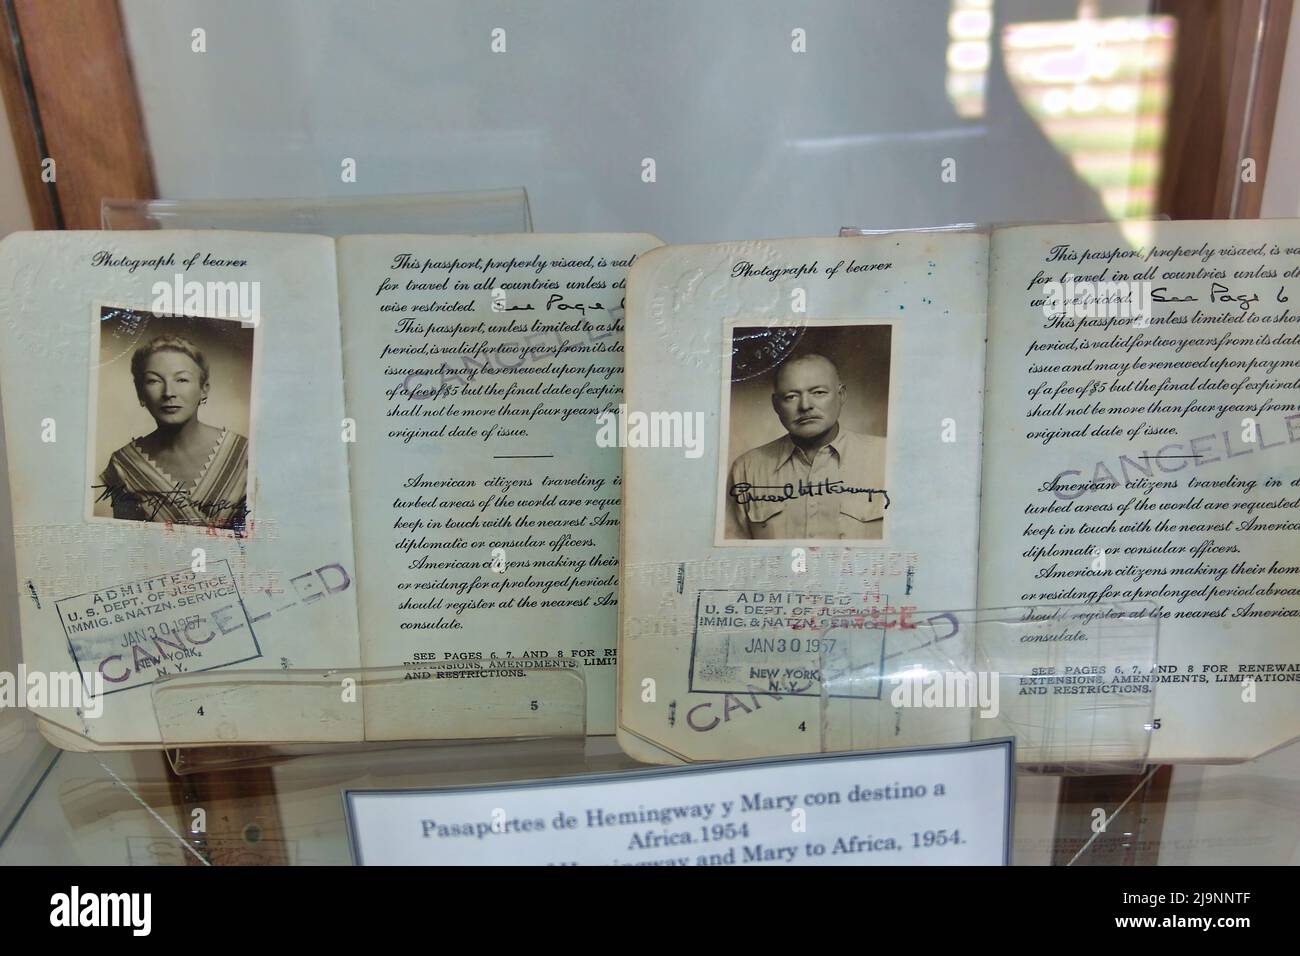 Photograph of bearer
Mary Hemingway
ADMITTED
U.S. DEPT. OF JUSTICE
IMMIG. & NATZN. SERVICE
JAN 30 1957
NEW YORK,
N.Y.
CANCELLED
4
This passport, properly visaed, is val
for travel in all countries unless oth
wise restricted. See Page 6
This passport, unless limited to a shor
period, is valid for two years from its da
issue and may be renewed upon paym
of a fee of $5 but the final date of expir
shall not be more than four years fro
original date of issue.
CANCELLED
American citizens traveling in
turbed areas of the world are reque
keep in touch with the nearest Ame
diplomatic or consular officers.
American citizens making their
or residing for a prolonged period a
should register at the nearest Am
consulate.
SEE PAGES 6, 7, AND 8 FOR RE
EXTENSIONS, AMENDMENTS, LIMIT
AND RESTRICTIONS.
5
Photograph of bearer
Ernest M. Hemingway
ADMITTED
U. S. DEPT. OF JUSTICE
IMMIG. & NATZN. SERVICE
JAN 30 1957
NEW YORK,
N.Y.
CANCELLED
4
This passport, properly visaed, is va
for travel in all countries unless oth
wise restricted. See Page 6
This passport, unless limited to a shor
period, is valid for two years from its date
issue and may be renewed upon payme
of a fee of $5 but the final date of expirat
shall not be more than four years from
original date of issue.
CANCELLED
American citizens traveling in d
turbed areas of the world are requested
keep in touch with the nearest America
diplomatic or consular officers.
American citizens making their hom
or residing for a prolonged period abroa
should register at the nearest American
consulate.
SEE PAGES 6, 7, AND 8 FOR RENEWAL
EXTENSIONS, AMENDMENTS, LIMITATIONS
AND RESTRICTIONS.
5
Pasaportes de Hemingway y Mary con destino a
Africa.1954
of Hemingway and Mary to Africa, 1954.
alamy
Image ID: 2J9NNTF
www.alamy.com